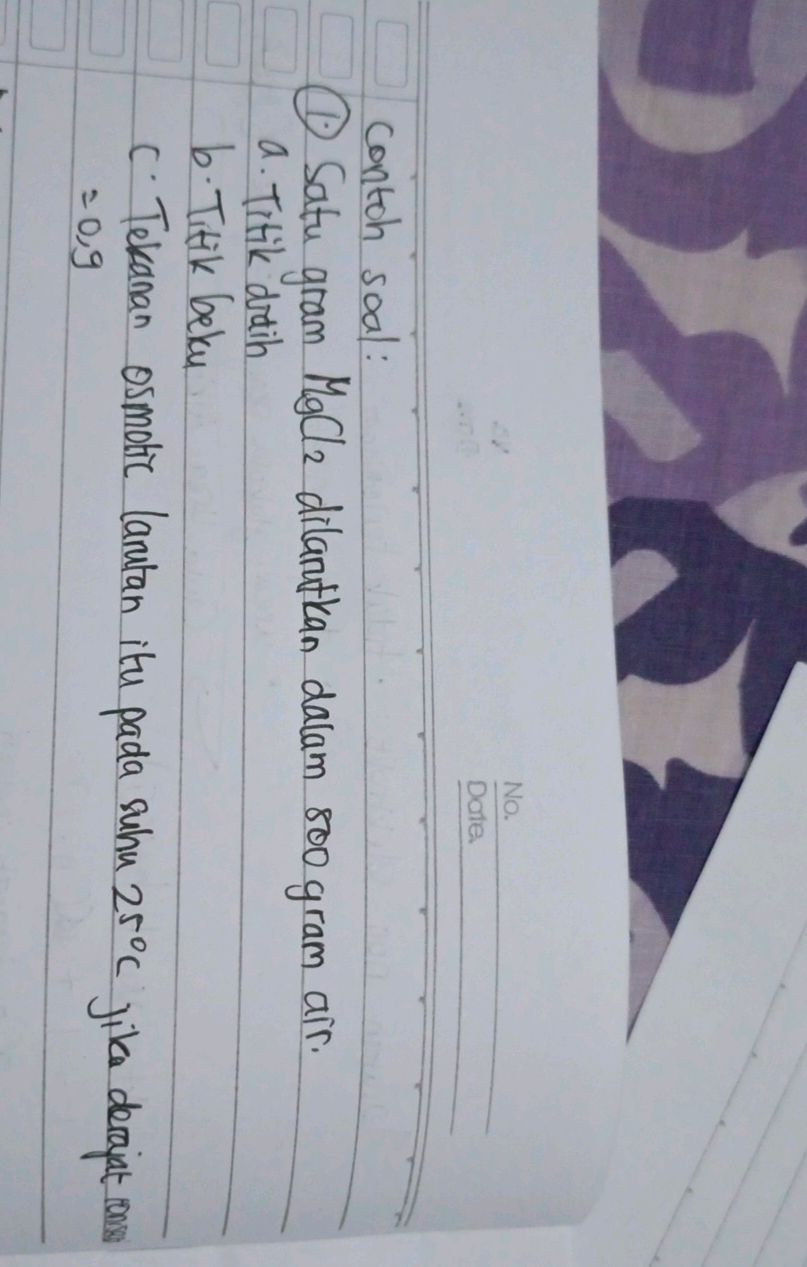 No.
Date
Contoh soal:
1. Satu gram MgCl2 dilarutkan dalam 800 gram air.
a. Titik didih
b. Titik beku
c. Tekanan osmotic larutan itu pada suhu 25°C jika derajat
= 0,9